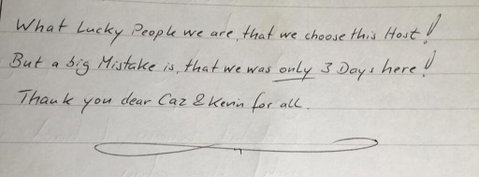 What Lucky People we are, that we choose this Host!
But a big Mistake is, that we was only 3 Days here!
Thank you dear Caz & Kevin for all.